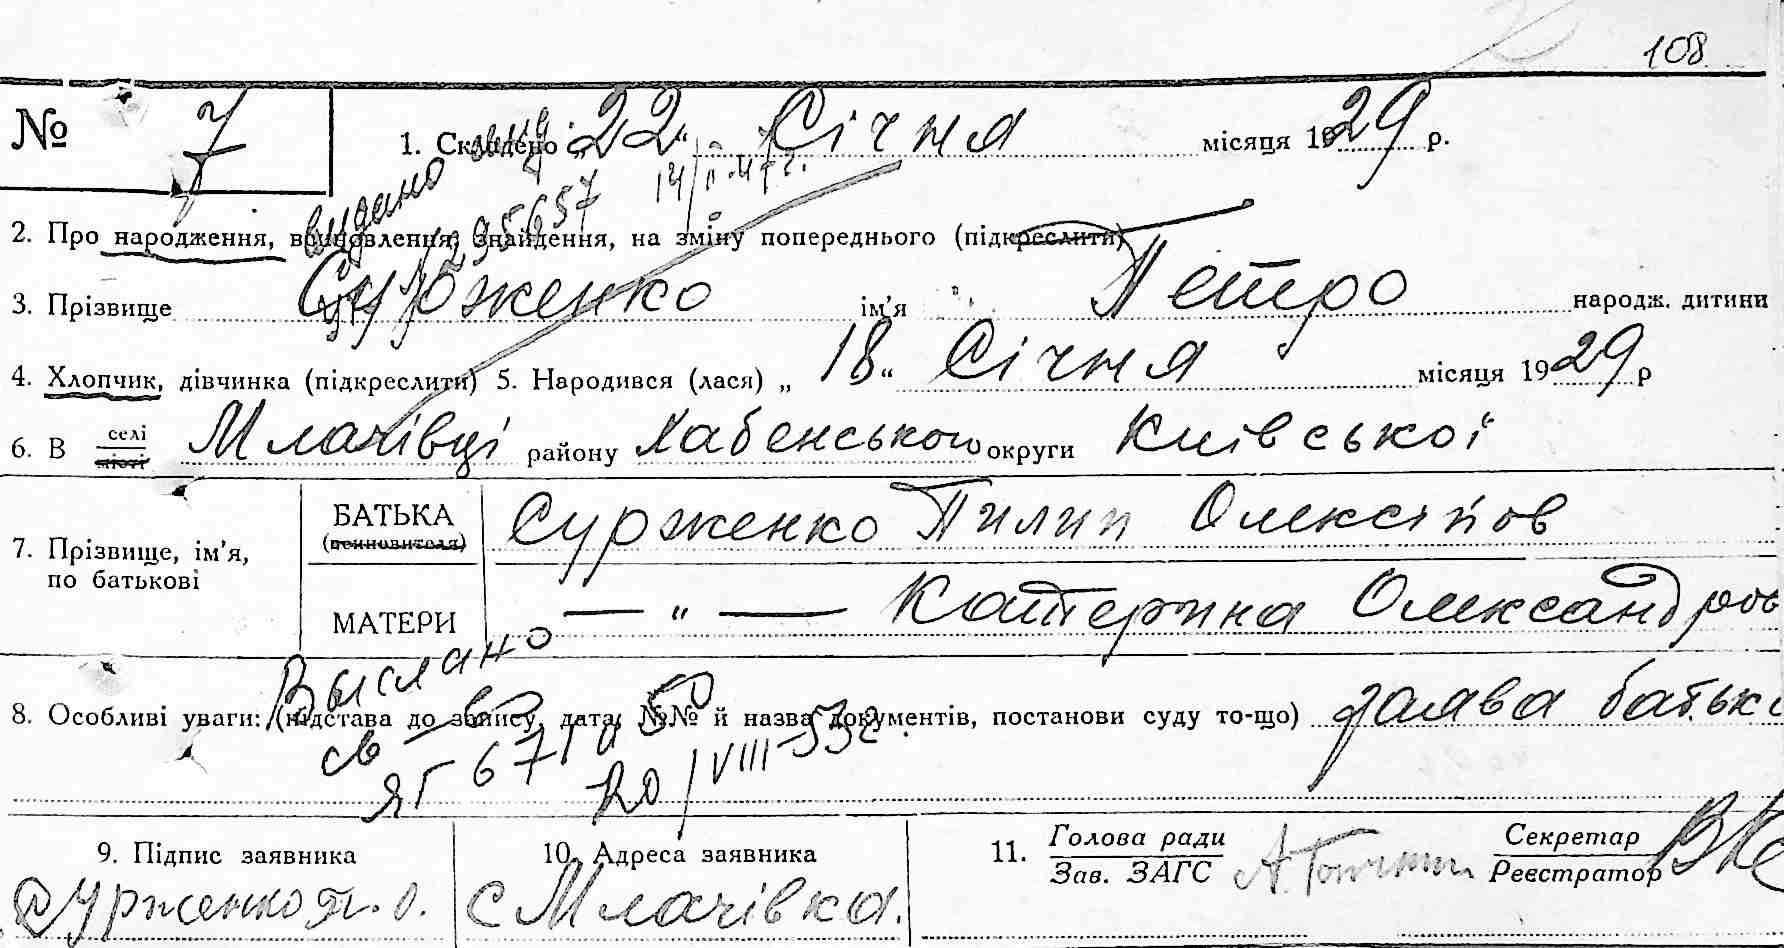 108
№ 7 1. Складено „22“ Січня місяця 1929 р.
видано
14/II-47г.
295657
2. Про народження, вспиновлення, знайдення, на зміну попереднього (підкреслити)
3. Прізвище Сурженко ім’я Петро народж. дитини
4. Хлопчик, дівчинка (підкреслити) 5. Народився (лася) „18“ Січня місяця 1929 р
6. В селі Млачівці району Хабенського округи Київської
місті
7. Прізвище, ім’я, по батькові
БАТЬКА Сурженко Пилип Олексіїов
(всиновителя)
МАТЕРИ — „ — Катерина Олександров
Выслано
8. Особливі уваги: (підстава до запису, дата, №№ й назва документів, постанови суду то-що) заява батьк
св-во
ЯГ 671050
20/VIII-53г.
9. Підпис заявника
Сурженко П. О.
10. Адреса заявника
с Млачівка.
11. Голова ради
Зав. ЗАГС
Секретар
Реєстратор